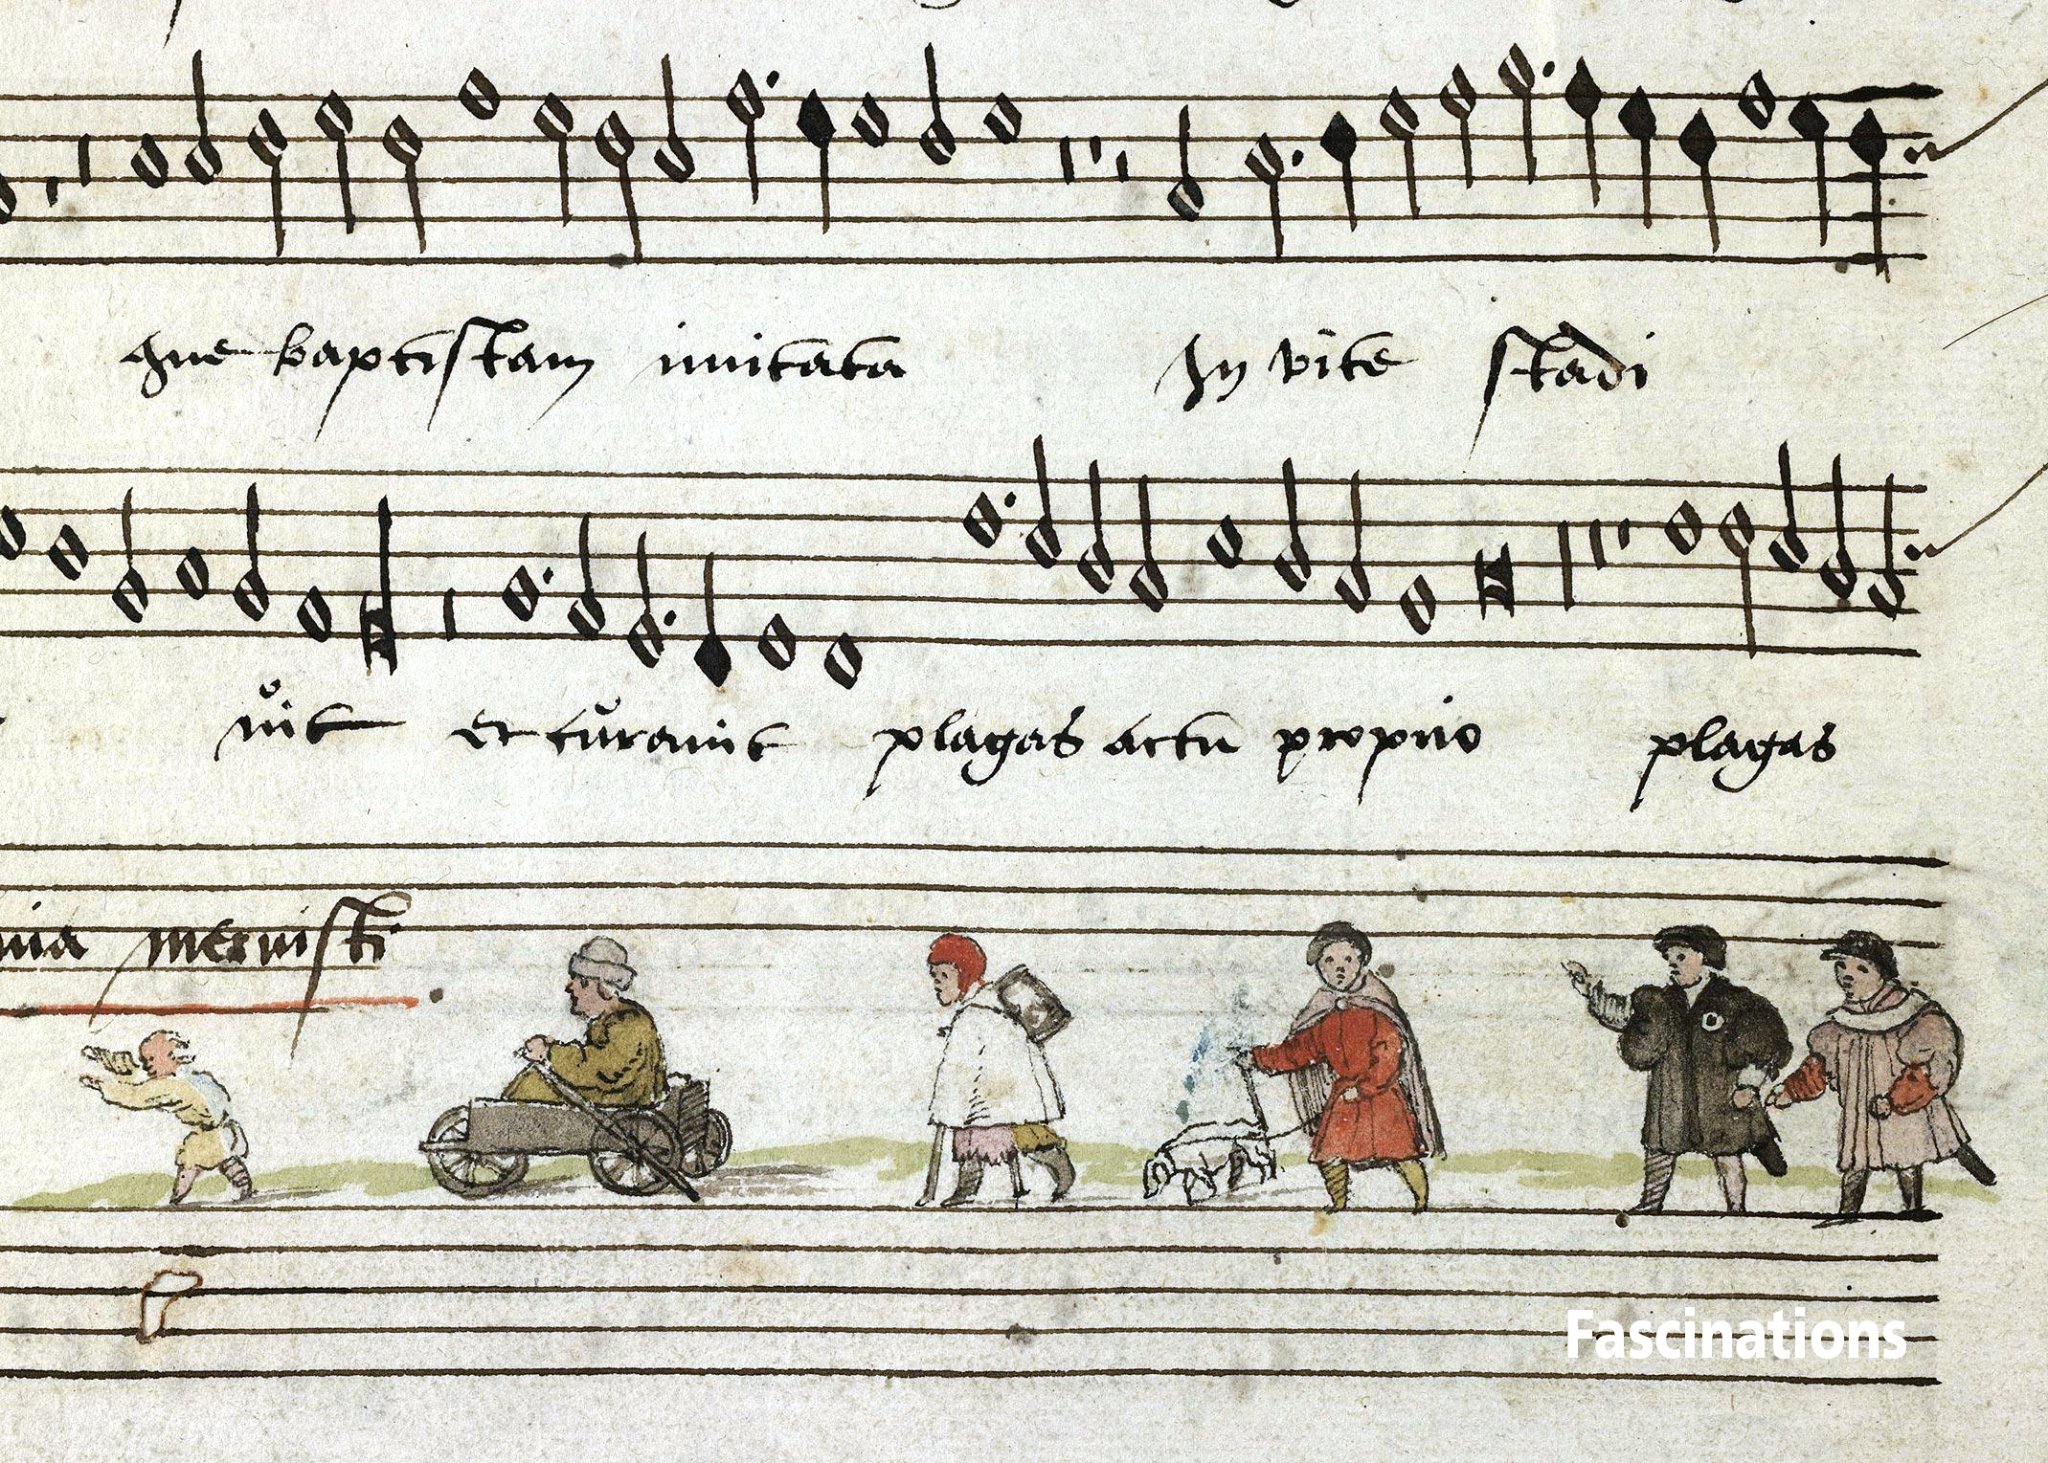 que baptistam imitata In vite stadi
uit et curauit plagas actu propiio plagas
meruisti
Fascinations